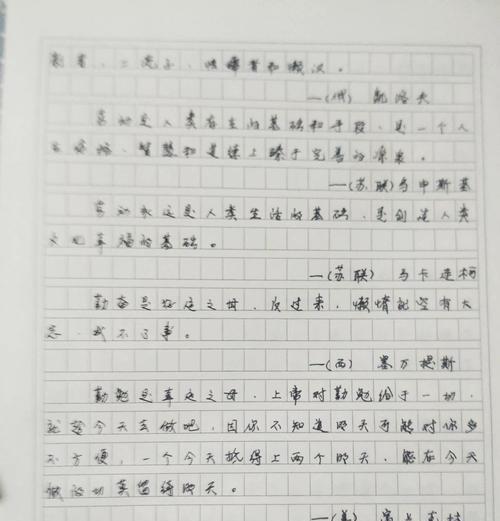 家者、二流子、酗酒者和懒汉。
—(俄) 凯洛夫
劳动是人类存生的基础和手段，是一个人
智慧和道德上臻于完善的源泉。
—(苏联)乌申斯基
劳动永远是人类生活的基础，是创造人类
文化幸福的基础。
—(苏联) 马卡连柯
勤奋是好运之母，反过来，懒惰就空有大
志，成不了事。
—(西) 塞万提斯
勤勉是幸运之母，上帝对勤勉给于一切，
就趁今天去做吧，因你不知道明天可能对你多
不方便，一个今天抵得上两个明天，能在今天
做的切莫留待明天。
—(美) 富兰克林